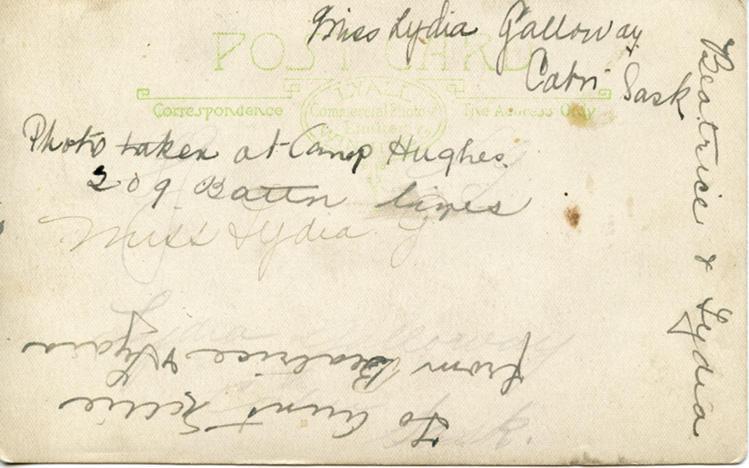 Miss Lydia Galloway
Cabri Sask
POST CARD
Correspondence
Commercial Photo
The Address Only
Photo taken at Camp Hughes.
209 Battn lines
Miss Lydia G
To Aunt Nellie
from Beatrice & Lydia
Beatrice & Lydia